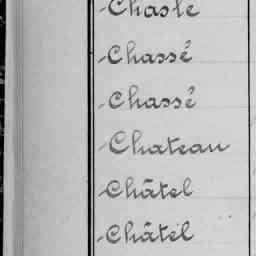 Chasle
Chassé
Chassé
Chateau
Châtel
Châtel